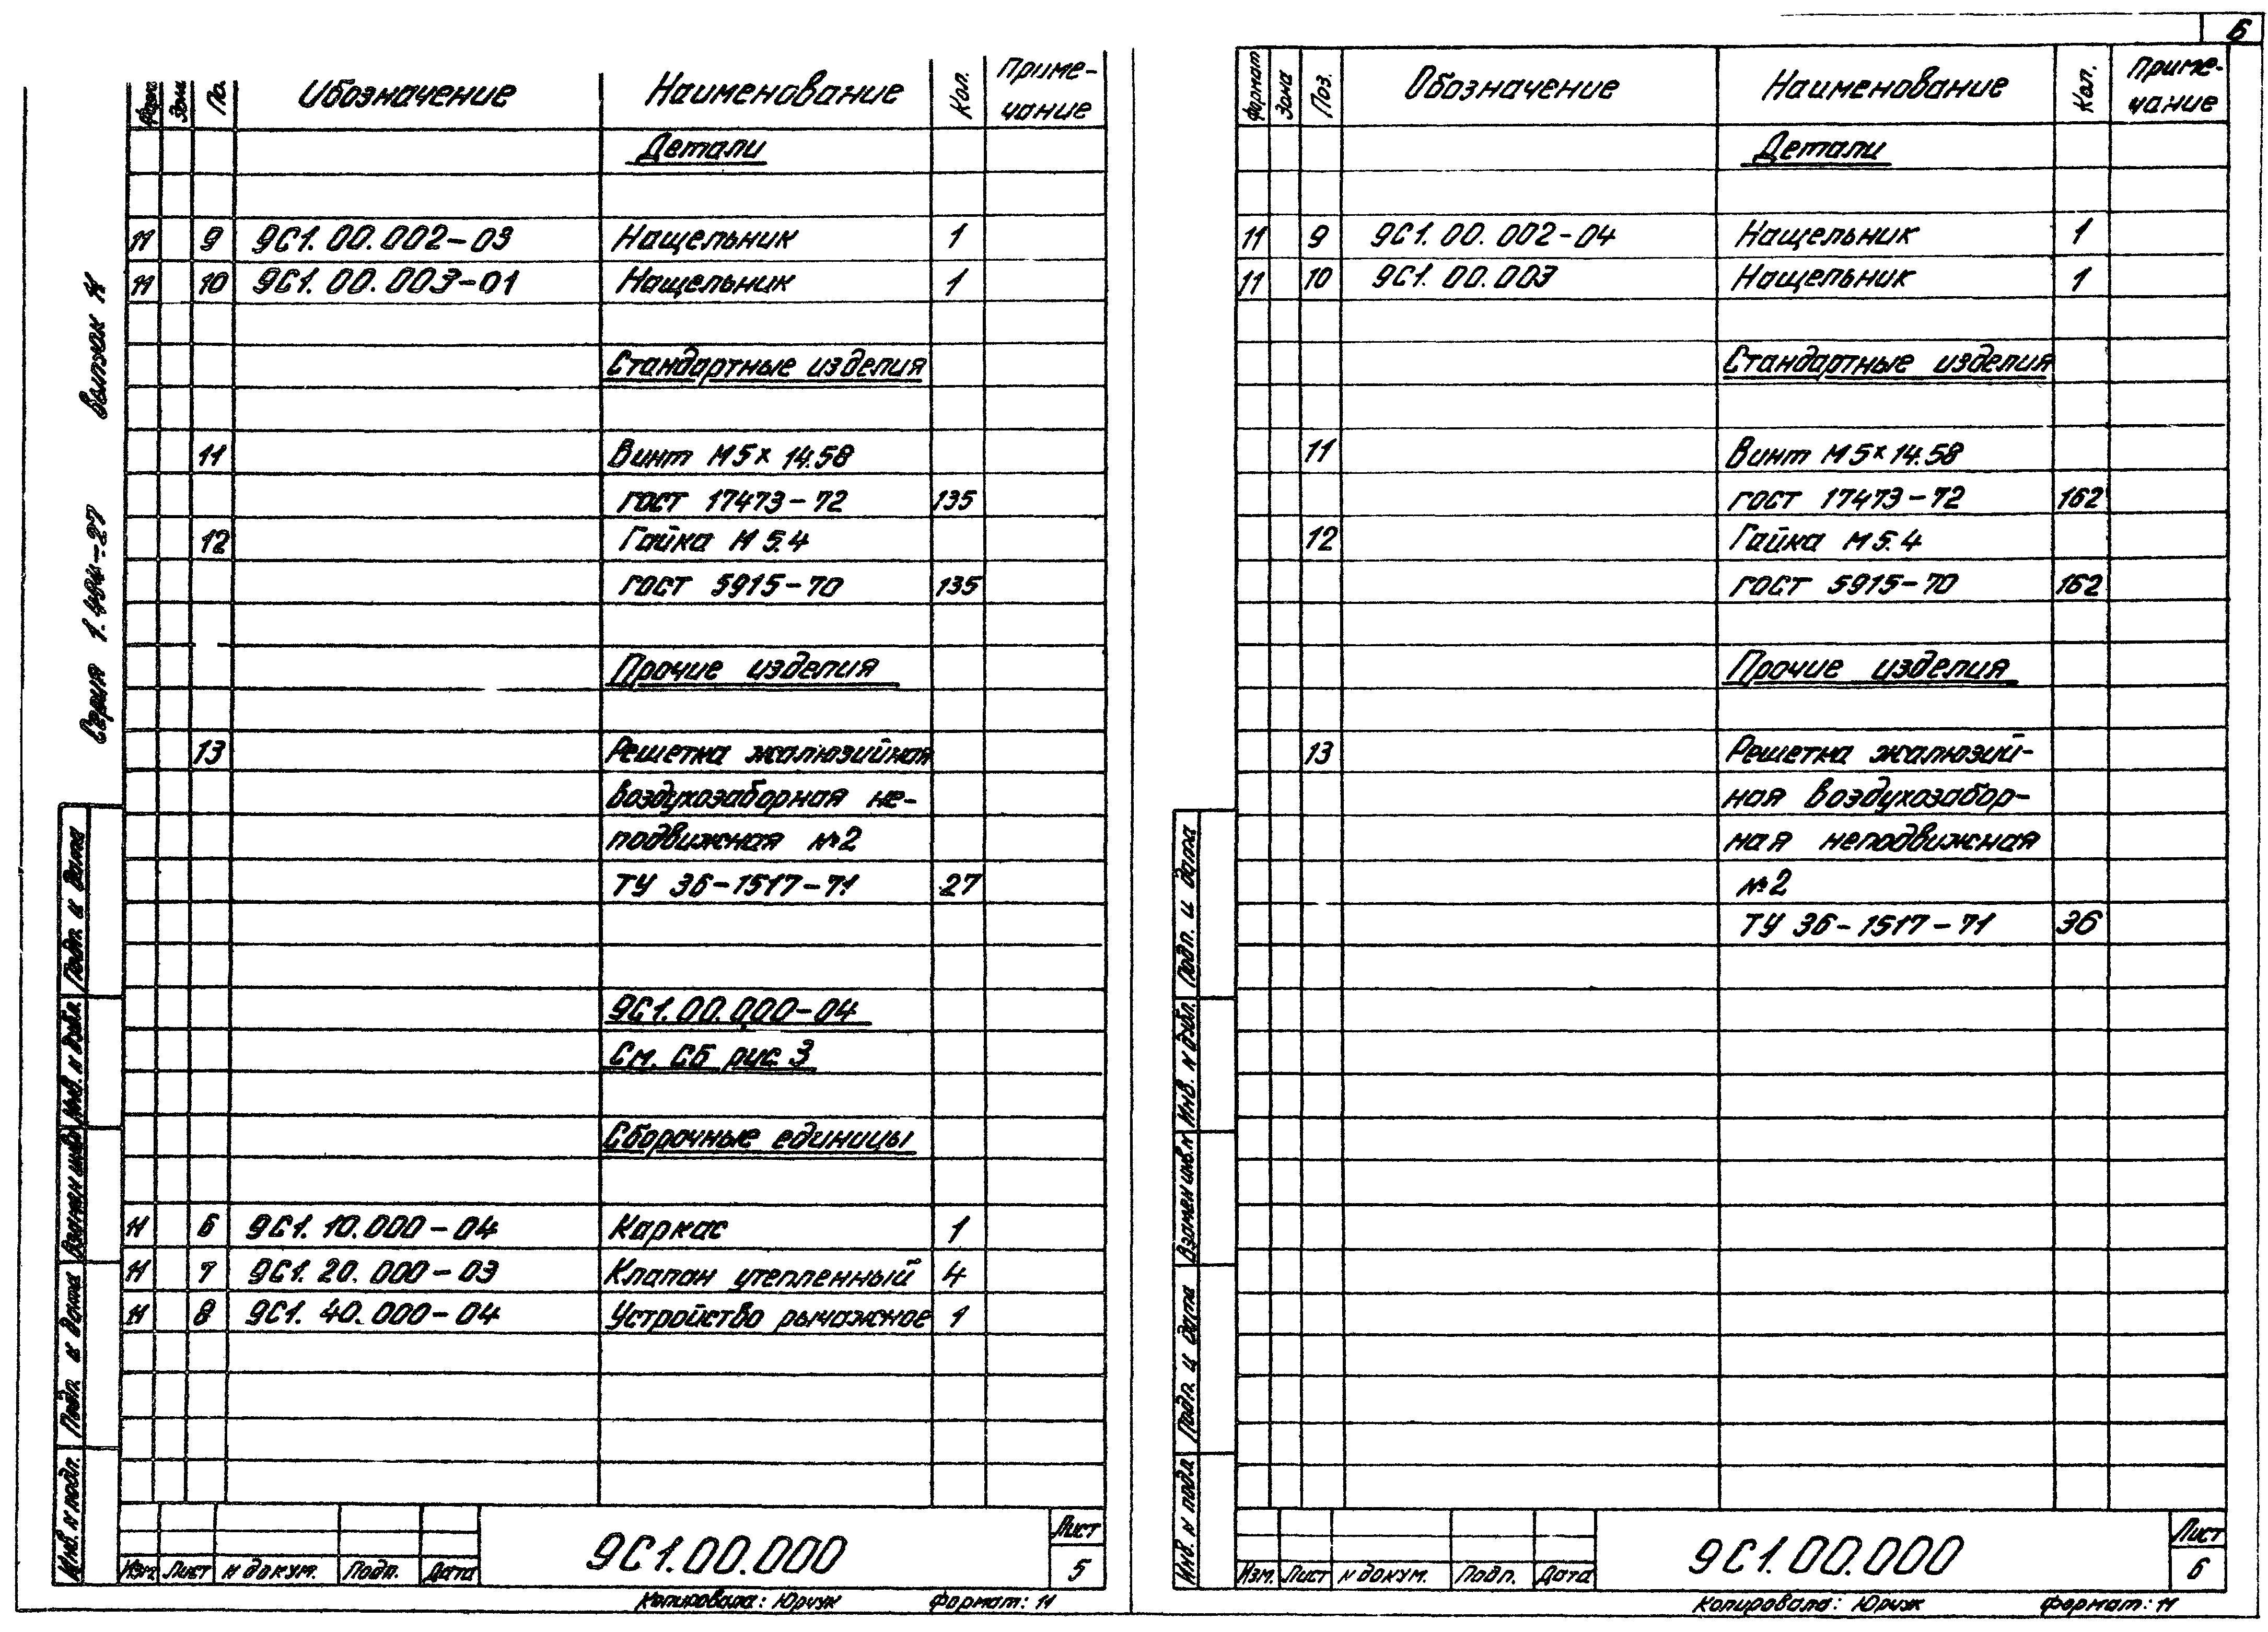 6
Серия 1.494-27 выпуск
Зона Обозначение Наименование Кол. Приме-
чание
Детали
11 9 9С1.00.002-03 Нащельник 1
11 10 9С1.00.003-01 Нащельник 1
Стандартные изделия
11 Винт М5х14.58
ГОСТ 17473-72 135
12 Гайка М5.4
ГОСТ 5915-70 135
Прочие изделия
13 Решетка жалюзийная
воздухозаборная не-
подвижная №2
ТУ 36-1517-71 27
9С1.00.000-04
См. СБ рис 3
Сборочные единицы
11 6 9С1.10.000-04 Каркас 1
11 7 9С1.20.000-03 Клапан утепленный 4
11 8 9С1.40.000-04 Устройство рычажное 1
Инв. N подл. Подп. и дата Взамен инв.N Инв. N дубл. Подп. и дата
Изм. Лист N докум. Подп. Дата
9С1.00.000
Лист
5
Копировала: Юрчук Формат: 11
Формат Зона Поз. Обозначение Наименование Кол. Приме-
чание
Детали
11 9 9С1.00.002-04 Нащельник 1
11 10 9С1.00.003 Нащельник 1
Стандартные изделия
11 Винт М5х14.58
ГОСТ 17473-72 162
12 Гайка М5.4
ГОСТ 5915-70 162
Прочие изделия
13 Решетка жалюзий-
ная воздухозабор-
ная неподвижная
№2
ТУ 36-1517-71 36
Инв. N подл. Подп. и дата Взамен инв.N Инв. N дубл. Подп. и дата
Изм. Лист N докум. Подп. Дата
9С1.00.000
Лист
6
Копировала: Юрчук Формат: 11